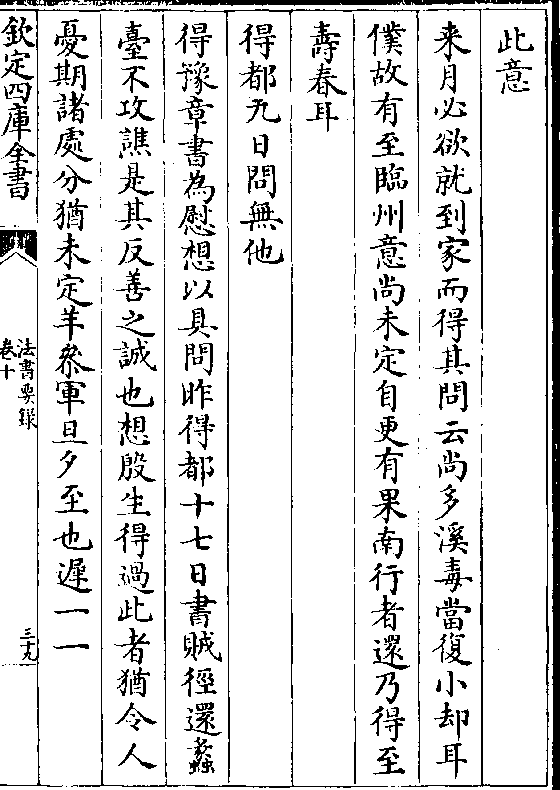 此意
来月必欲就到家而得其問云尚多溪毒當復小却耳
僕故有至臨州意尚未定自更有果南行者還乃得至
壽春耳
得都九日問無他
得豫章書為慰想以具問昨得都十七日書賊徑還蠡
臺不攻譙是其反善之誠也想殷生得過此者猶令人
憂期諸處分猶未定羊叅軍旦夕至也遲一一
欽定四庫全書
法書要録
卷十
三十九